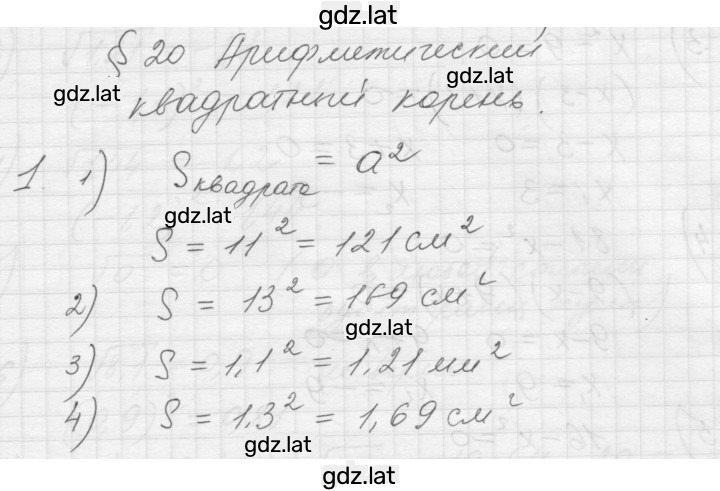 gdz.lat
§ 20 Арифметический
gdz.lat
gdz.lat
квадратный корень.
1. 1) Sквадрата = a²
gdz.lat
S = 11² = 121 см²
2) S = 13² = 169 см²
gdz.lat
3) S = 1,1² = 1,21 мм²
4) S = 1,3² = 1,69 см²
gdz.lat
gdz.lat